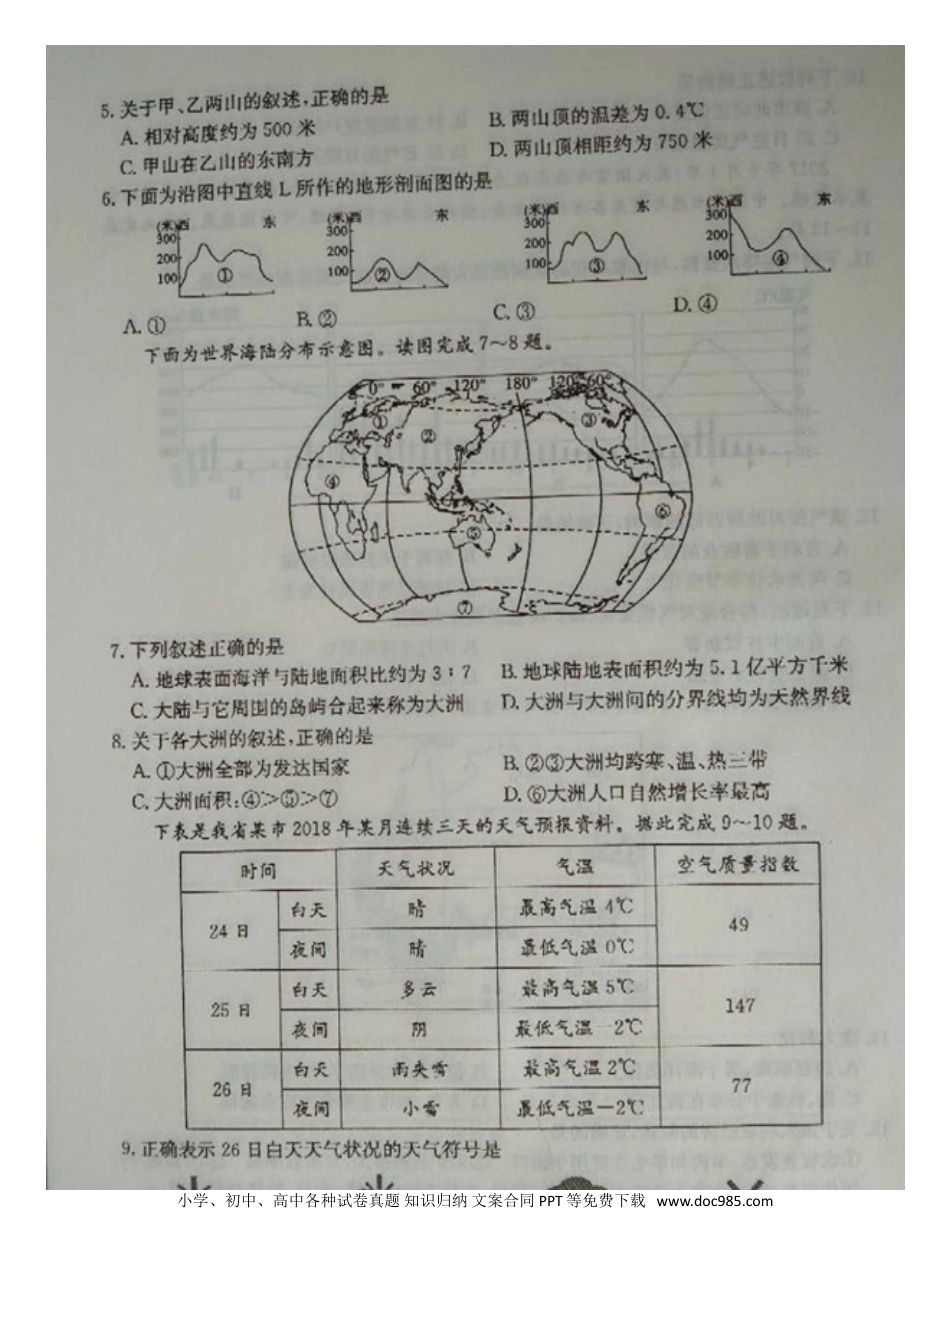 5.关于甲、乙两山的叙述,正确的是
A.相对高度约为500米
B.两山顶的温差为0.4℃
C.甲山在乙山的东南方
D.两山顶相距约为750米
6.下面为沿图中直线L所作的地形剖面图的是
(米)西 东 (米)西 东 (米)西 东 (米)西 东
300 300 300 300
200 200 200 200
100 100 100 100
① ② ③ ④
A.① B.② C.③ D.④
下面为世界海陆分布示意图。读图完成7~8题。
0° 60° 120° 180° 120° 60°
① ② ③
④ ⑤ ⑥
⑦
7.下列叙述正确的是
A.地球表面海洋与陆地面积比约为3∶7
B.地球陆地表面积约为5.1亿平方千米
C.大陆与它周围的岛屿合起来称为大洲
D.大洲与大洲间的分界线均为天然界线
8.关于各大洲的叙述,正确的是
A.①大洲全部为发达国家
B.②③大洲均跨寒、温、热三带
C.大洲面积:④>⑤>⑦
D.⑥大洲人口自然增长率最高
下表是我省某市2018年某月连续三天的天气预报资料。据此完成9~10题。
时间 天气状况 气温 空气质量指数
24日 白天 晴 最高气温4℃ 49
夜间 晴 最低气温0℃
25日 白天 多云 最高气温5℃ 147
夜间 阴 最低气温-2℃
26日 白天 雨夹雪 最高气温2℃ 77
夜间 小雪 最低气温-2℃
9.正确表示26日白天天气状况的天气符号是
小学、初中、高中各种试卷真题 知识归纳 文案合同 PPT 等免费下载 www.doc985.com